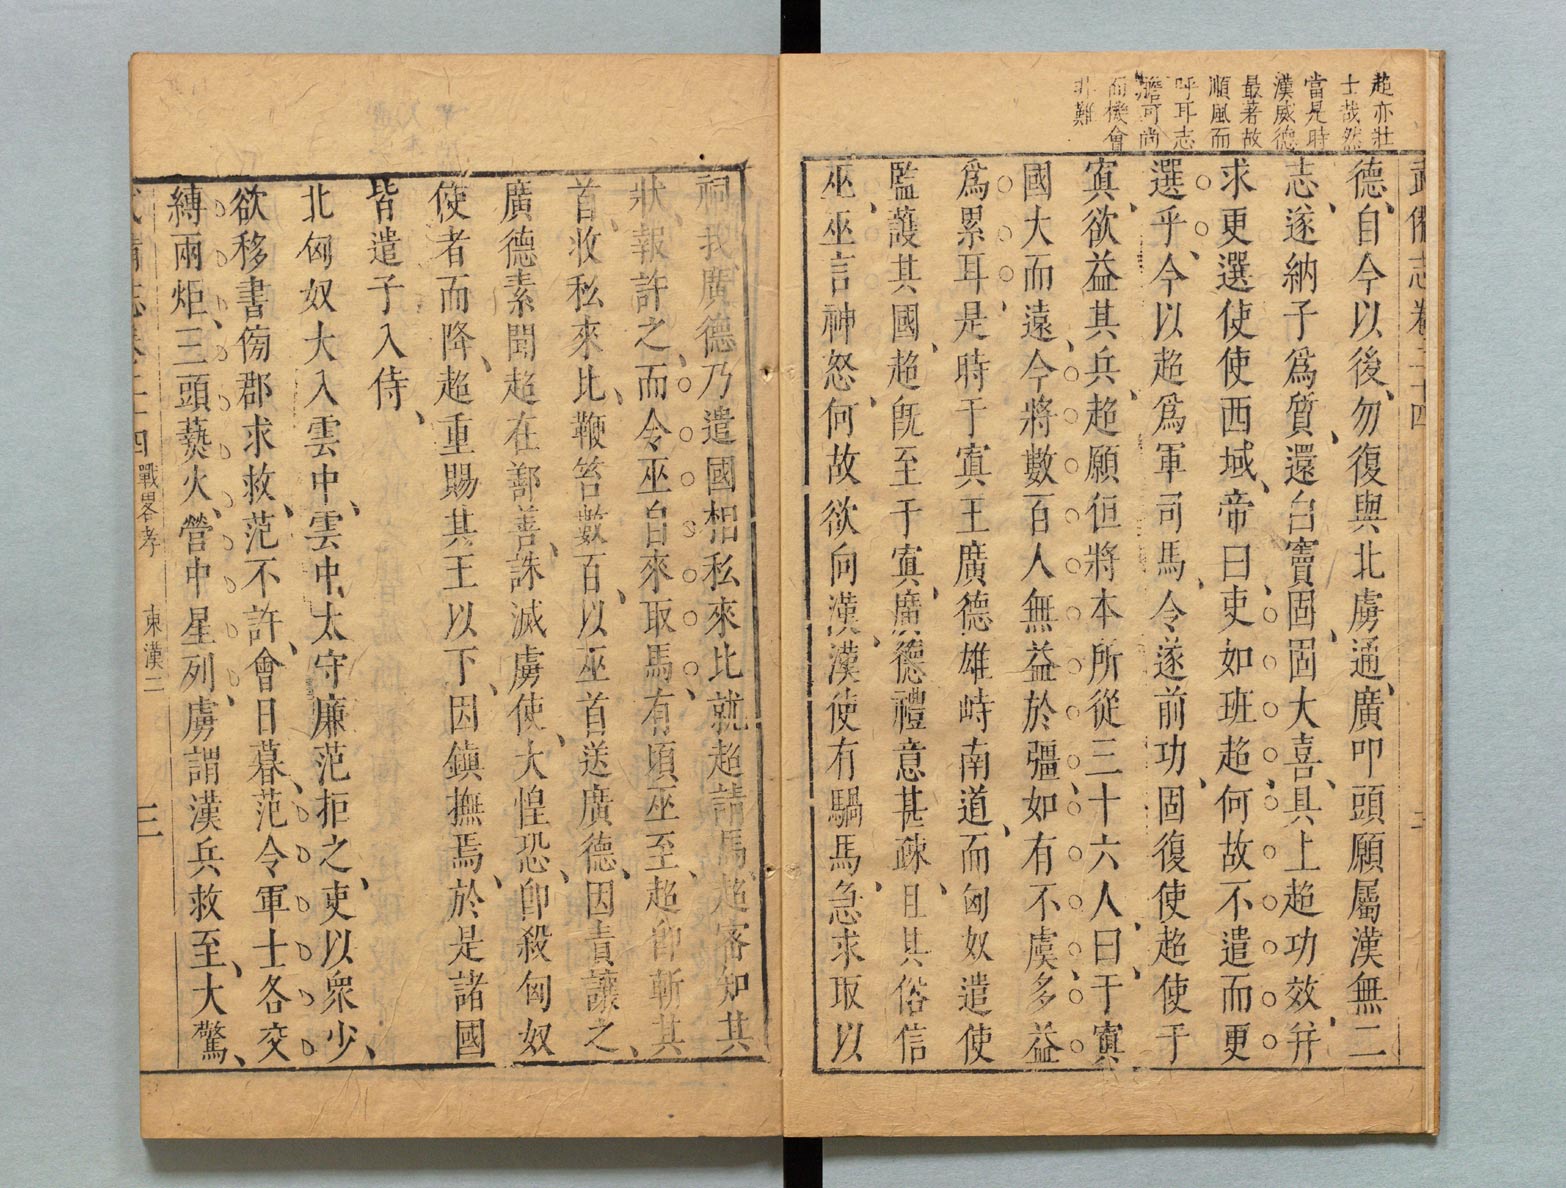 超亦壯
士哉然
當是時
漢威德
最著故
順風而
呼耳志
膽可尚
而機會
非難
武備志卷二十四 二
德、自今以後、勿復與北虜通、廣叩頭願屬漢無二
志、遂納子爲質、還白竇固、固大喜、具上超功效、并
求更選使使西域、帝曰、吏如班超、何故不遣而更
選乎、今以超爲軍司馬、令遂前功、固復使超使于
寘、欲益其兵、超願但將本所從三十六人、曰、于寘
國大而遠、今將數百人無益於彊、如有不虞、多益
爲累耳、是時于寘王廣德雄峙南道、而匈奴遣使
監護其國、超旣至于寘、廣德禮意甚疎、且其俗信
巫、巫言神怒、何故欲向漢、漢使有騧馬、急求取以
祠我、廣德乃遣國相私來比就超請馬、超密知其
狀、報許之、而令巫自來取馬、有頃巫至、超卽斬其
首、收私來比、鞭笞數百、以巫首送廣德、因責讓之、
廣德素聞超在鄯善、誅滅虜使、大惶恐、卽殺匈奴
使者而降、超重賜其王以下、因鎭撫焉、於是諸國
皆遣子入侍、
北匈奴大入雲中、雲中太守廉范拒之、吏以衆少、
欲移書傍郡求救、范不許、會日暮、范令軍士各交
縛兩炬、三頭爇火、營中星列、虜謂漢兵救至、大驚、
武備志卷二十四 戰畧考 東漢二 三